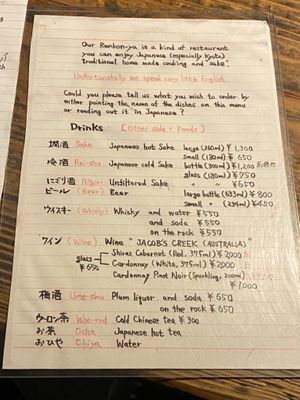 Our Renkon-ya is a kind of restaurant
you can enjoy Japanese (especially Kyoto)
traditional home made cooking and "sake".
Unfortunately we speak very little English.
Could you please tell us what you wish to order by
either pointing the name of the dishes on this menu
or reading out it in Japanese?
Drinks [Other side = Foods]
燗酒 Sake Japanese hot Sake large (360ml) ¥1,300
small (180ml) ¥ 650
冷酒 Rei-shu Japanese cold Sake bottle (300ml) ¥1,200
glass (180ml) ¥750
にごり酒 Nigori Unfiltered Sake 〃 〃 ¥650
ビール (Beer) Beer large bottle (633ml) ¥800
small 〃 (334ml) ¥450
ウイスキー (Whisky) Whisky and water ¥550
and soda ¥550
on the rock ¥550
ワイン (Wine) Wine "JACOB'S CREEK (AUSTRALIA)"
glass ¥650
Shiraz Cabernet (Red, 375ml) ¥2000
Cardonnay (White, 375ml) ¥2000
Cardonnay Pinot Noir (Sparkling, 200ml)
¥1,000
梅酒 Ume-shu Plum liquor and soda ¥650
on the rock ¥650
ウーロン茶 Woo-ron Cold Chinese tea ¥300
お茶 Ocha Japanese hot tea
おひや Ohiya Water